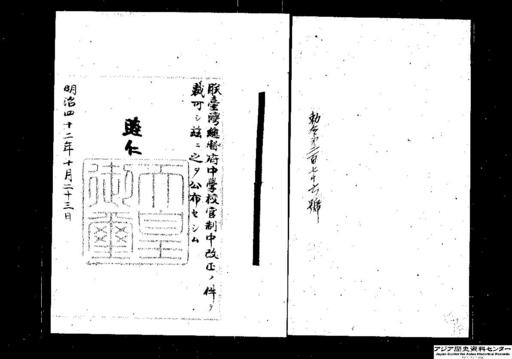 勅令第二百七十六號
朕臺灣總督府中學校官制中改正ノ件ヲ
裁可シ茲ニ之ヲ公布セシム
睦仁
天皇
御璽
明治四十二年十月二十三日
アジア歴史資料センター
Japan Center for Asian Historical Records